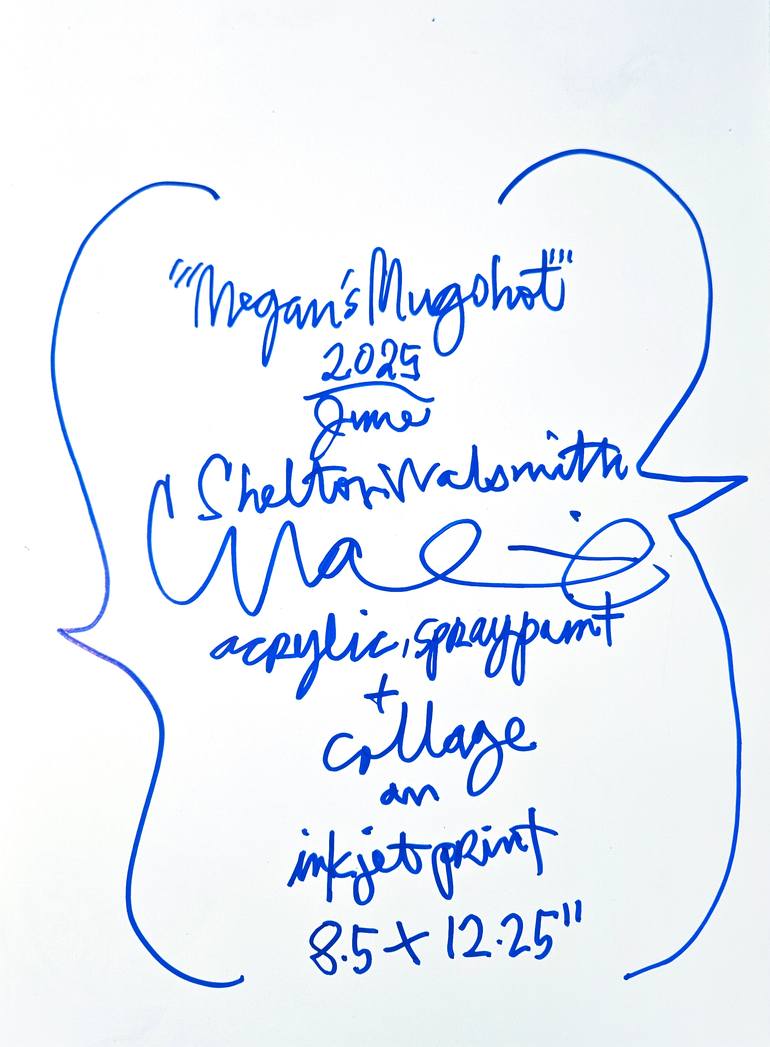 "'Megan's Mugshot'"
2025
June
Shelton Walsmith
acrylic, spraypaint
+
collage
on
inkjet print
8.5 x 12.25"